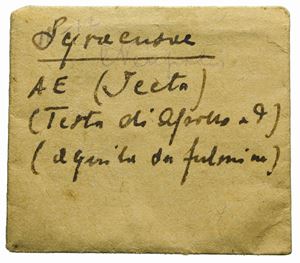 Syracusae
AE (Icetas)
(Testa di Apollo a d)
(aquila su fulmine)